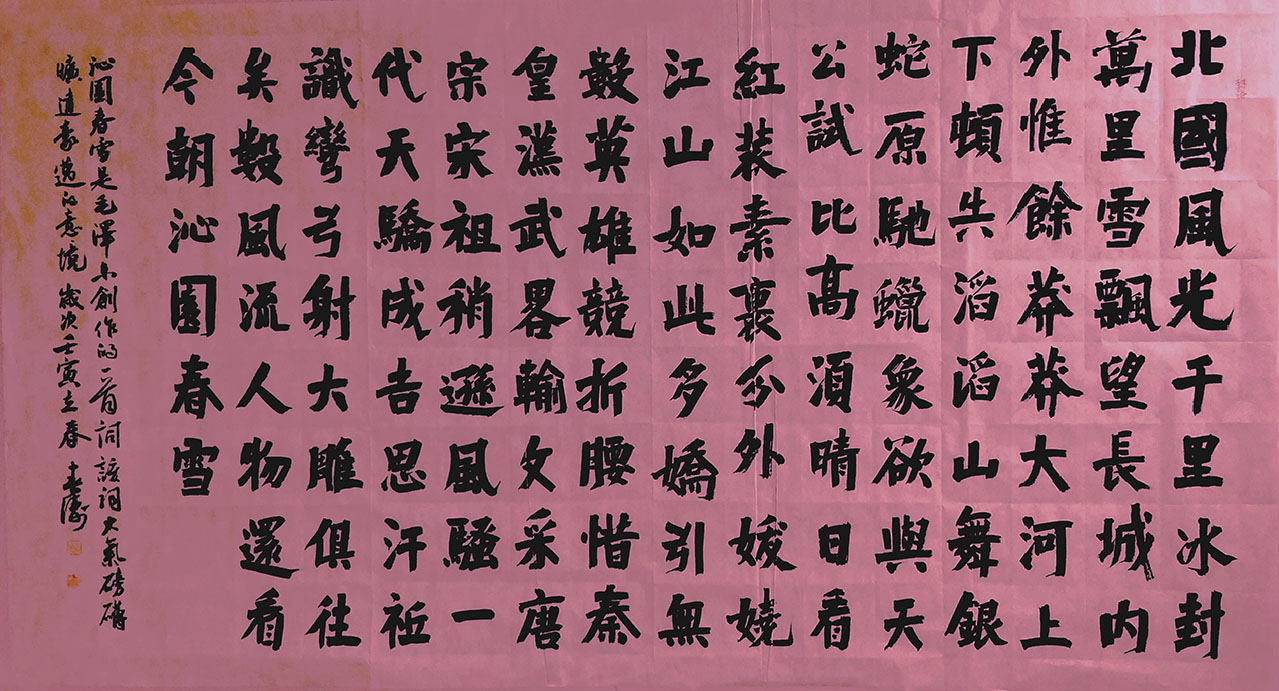 北國風光千里冰封
萬里雪飄望長城内
外惟餘莽莽大河上
下頓失滔滔山舞銀
蛇原馳蠟象欲與天
公試比高須晴日看
紅裝素裹分外媛嬈
江山如此多嬌引無
數英雄競折腰惜秦
皇漢武畧輸文采唐
宗宋祖稍遜風騷一
代天驕成吉思汗祗
識彎弓射大雕俱往
矣數風流人物還看
今朝沁園春雪
沁園春雪是毛澤东創作的一首詞該詞大氣磅礴
曠達豪邁的意境歲次壬寅立春